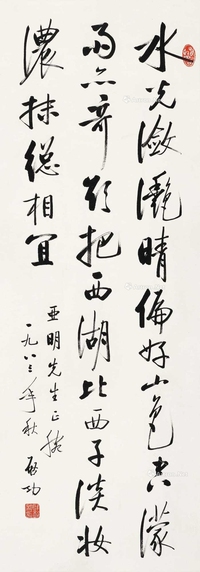 水光瀲灔晴偏好山色空濛
雨亦奇欲把西湖比西子淡妆
濃抹總相宜
亚明先生正
一九八三年秋 启功